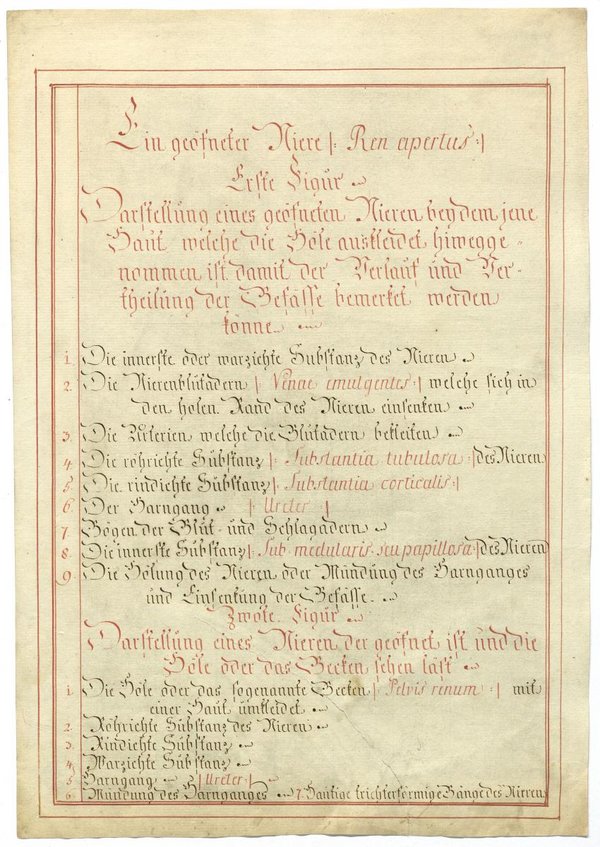 Ein geöfneter Niere |: Ren apertus :|
Erste Figur
Darstellung eines geöfneten Nieren bey dem jene
Haut welche die Höle auskleidet hinwegge-
nommen ist damit der Verlauf und Ver-
theilung der Gefässe bemerket werden
könne.
1. Die innerste oder warzichte Substanz des Nieren
2. Die Nierenblutadern |: Venae emulgentes :| welche sich in
den holen Rand des Nieren einsenken
3. Die Arterien welche die Blutadern bekleiten
4. Die röhrichte Substanz |: Substantia tubulosa :| des Nieren
5. Die rindichte Substanz |: Substantia corticalis :|
6. Der Harngang |: Ureter :|
7. Bögen der Blut- und Schlagadern
8. Die innerste Substanz |: Sub. medularis seu papillosa :| des Nieren
9. Die Hölung des Nieren oder Mündung des Harnganges
und Einsenkung der Gefässe.
Zwote Figur
Darstellung eines Nieren der geöfnet ist und die
Höle oder das Becken sehen läst
1. Die Höle oder das sogenannte Becken |: Pelvis rinum :| mit
einer Haut umkleidet
2. Röhrichte Substanz des Nieren
3. Rindichte Substanz
4. Warzichte Substanz
5. Harngang |: Ureter :|
6. Mündung des Harnganges 7. Häutige trichterförmige Gänge des Nieren